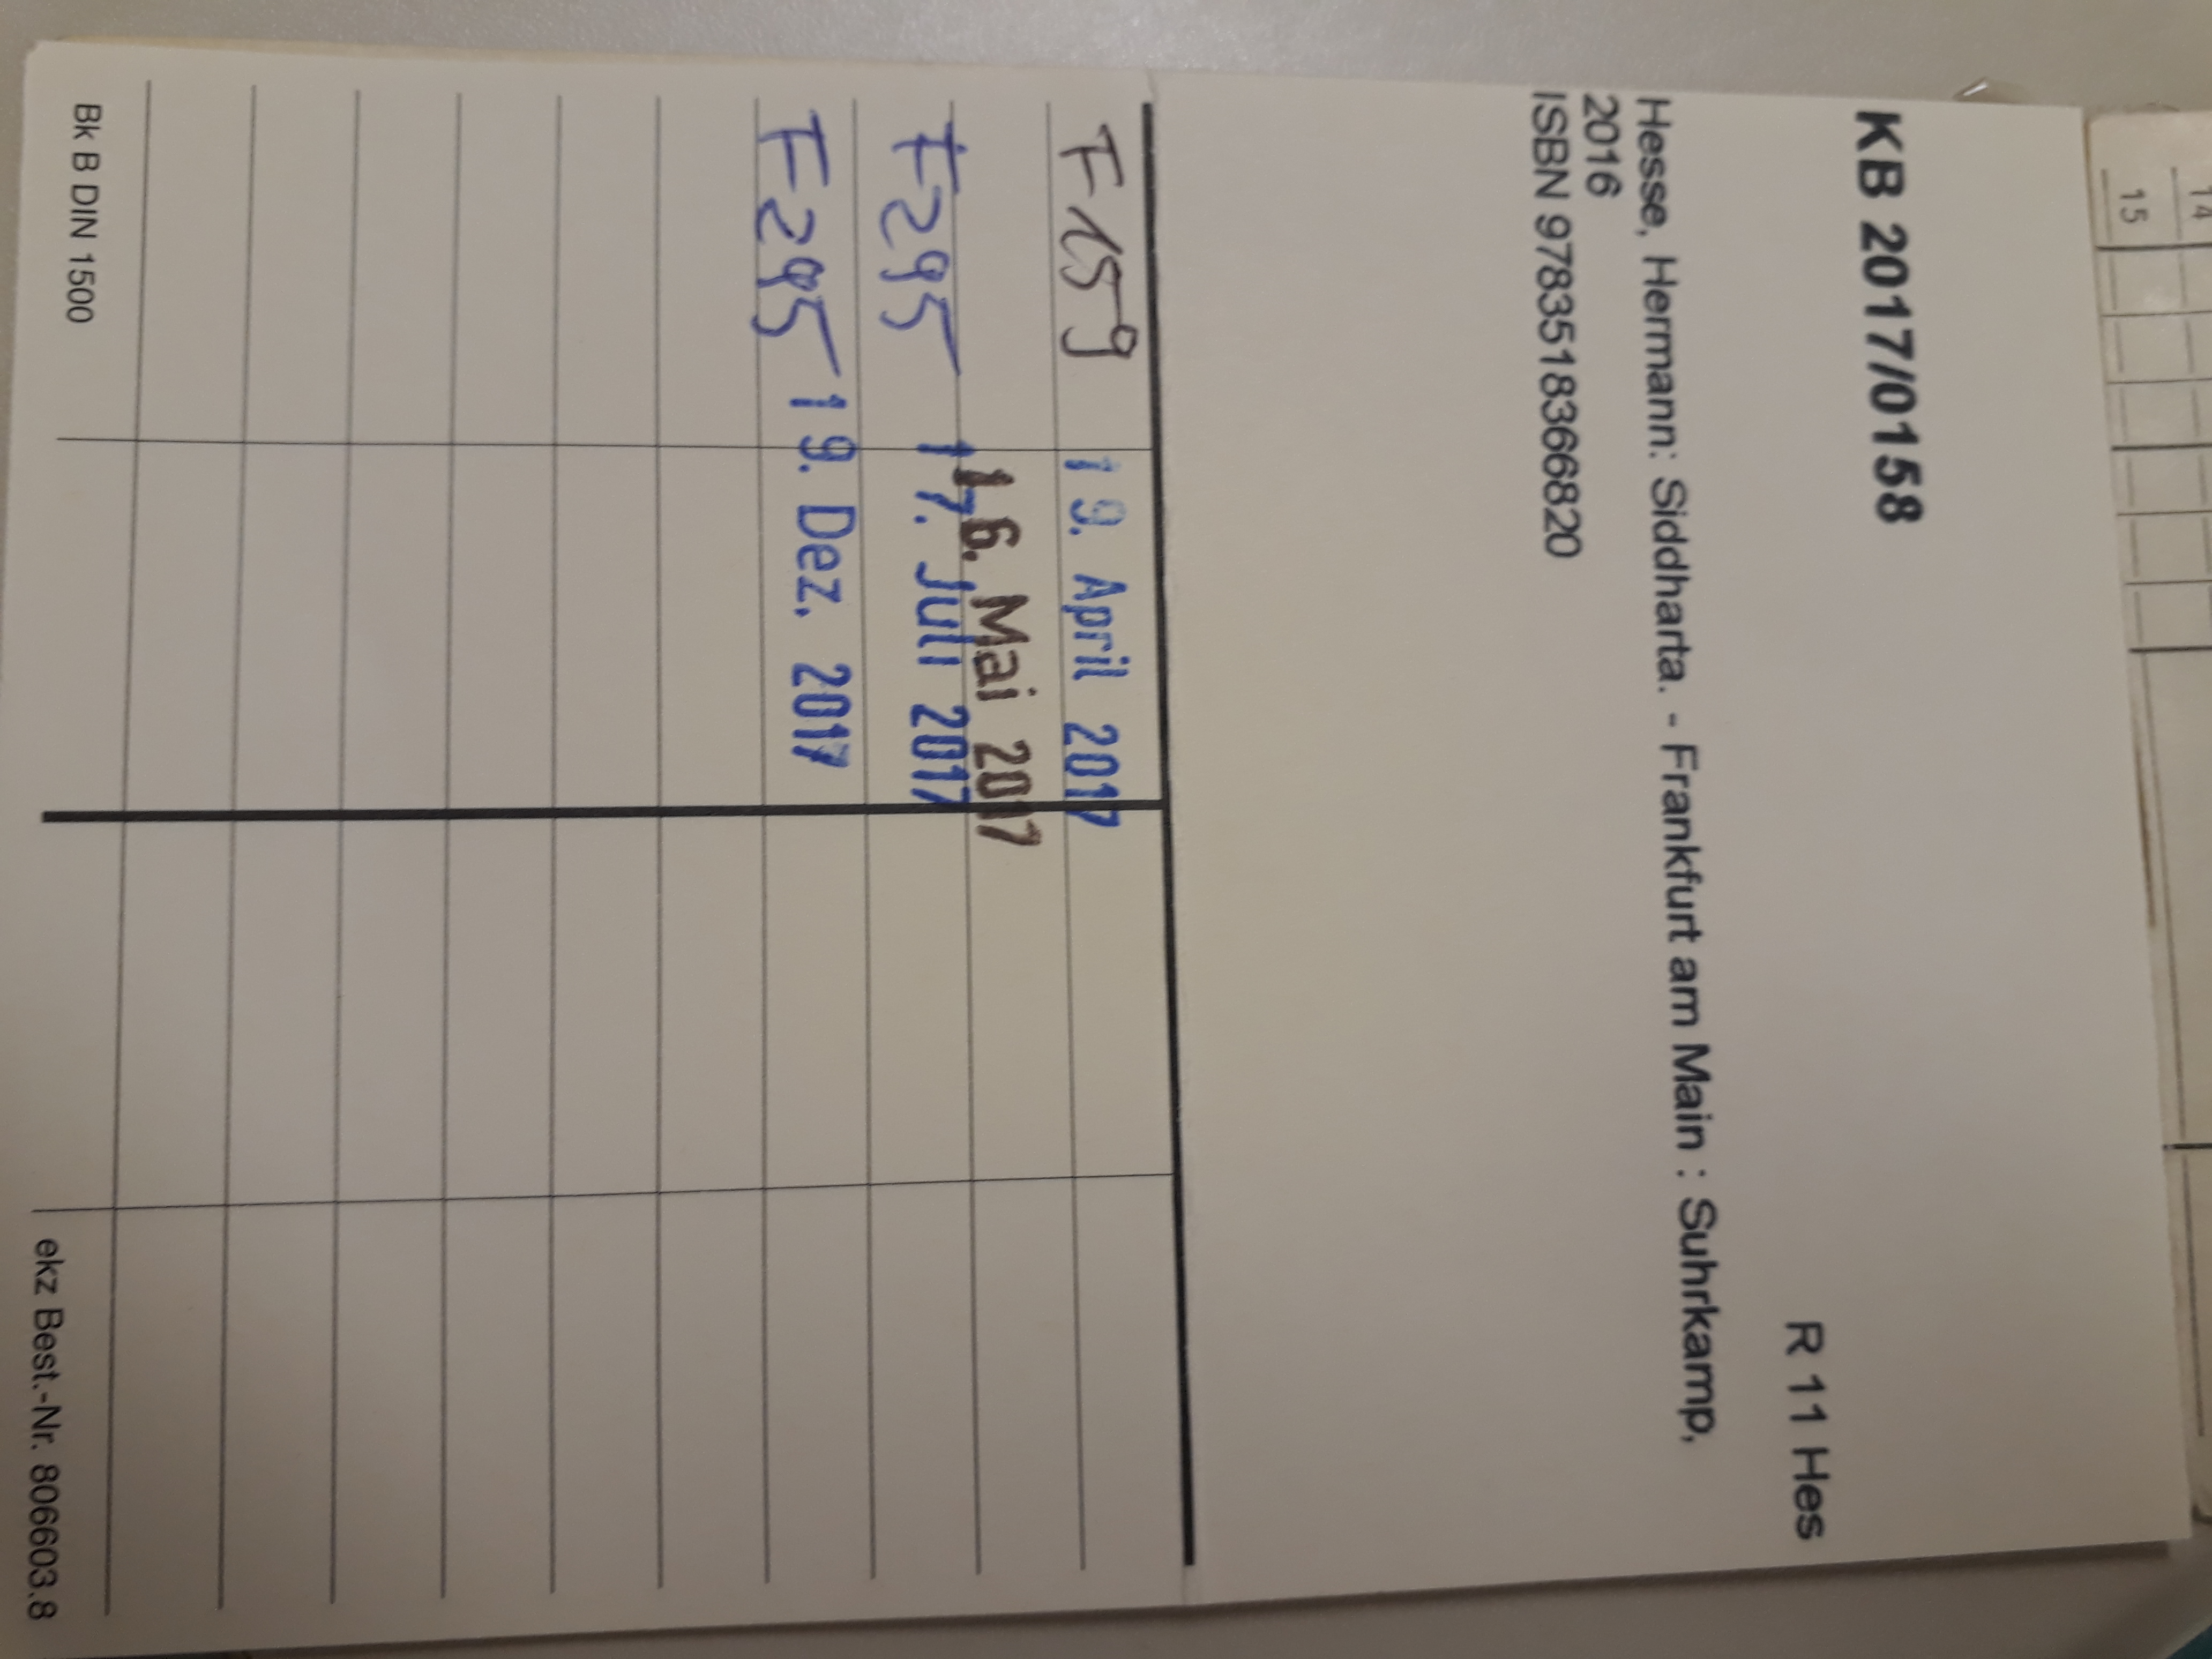 14
15
KB 2017/0158
R 11 Hes
Hesse, Hermann: Siddharta. - Frankfurt am Main : Suhrkamp,
2016
ISBN 9783518366820
F 159 19. April 2017
16. Mai 2017
F 295 17. Juli 2017
F 295 19. Dez. 2017
Bk B DIN 1500 ekz Best.-Nr. 806603.8